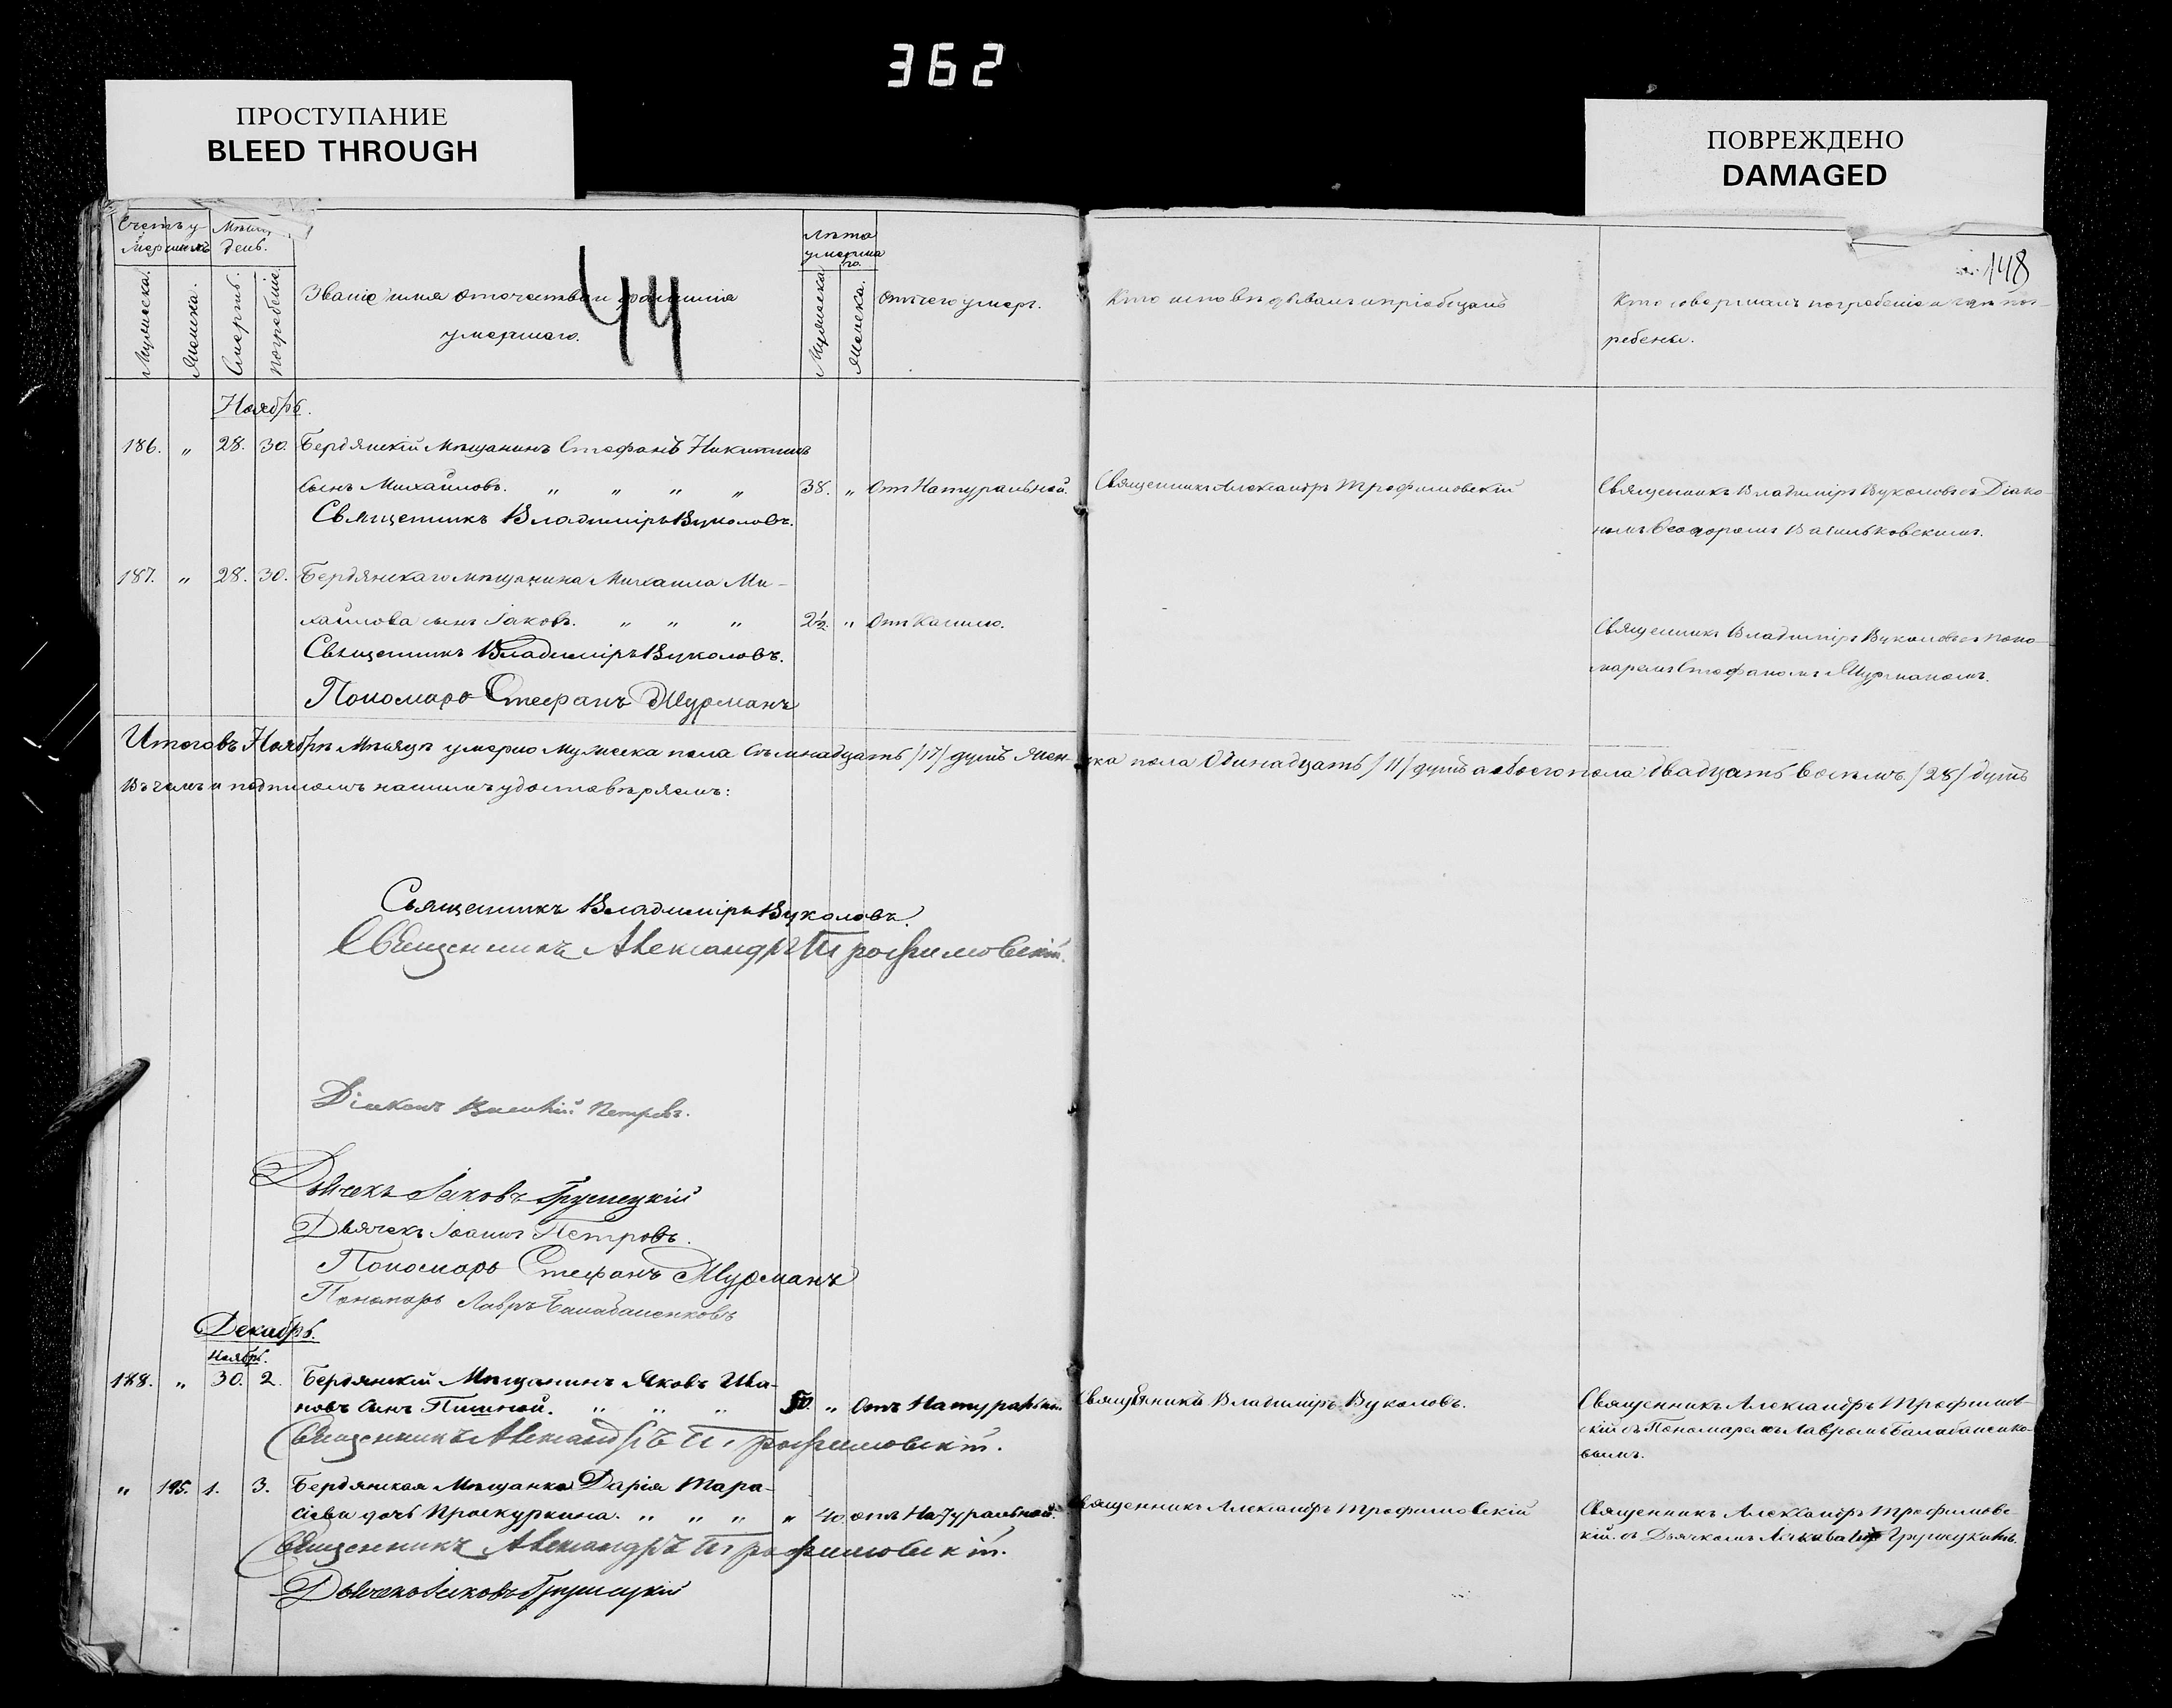 362
ПРОСТУПАНИЕ
BLEED THROUGH
ПОВРЕЖДЕНО
DAMAGED
Счетъ умершихъ
Мѣсяц день.
Лѣта умершаго.
148
Мужеска.
Женска.
Смерть.
Погребеніе.
Званіе имя оточество и фамилія
умершаго.
44
Мужеска
Женска.
Отъ чего умеръ.
Кто исповѣдывалъ и пріобщалъ
Кто совершалъ погребеніе и гдѣ пог-
ребены.
Ноябрь.
186. " 28. 30. Бердянскій Мѣщанинъ Стефанъ Никитинъ
сынъ Михайловъ. " " " " 38. " Отъ Натуральной. Священникъ Александръ Трофимовскій Священникъ Владиміръ Вуколовъ съ Діако-
Священникъ Владиміръ Вуколовъ.
номъ Ѳеодоромъ Васильковскимъ.
187. " 28. 30. Бердянскаго мѣщанина Михаила Ми-
хайлова сынъ Іаковъ. " " " 2½ " Отъ Кашлю. Священникъ Владиміръ Вуколовъ съ Поно-
Священникъ Владиміръ Вуколовъ.
маремъ Стефаномъ Шурманомъ.
Пономарь Стефанъ Шурманъ
Итого въ Ноябрѣ Мѣсяцѣ умерло мужеска пола Семнадцать /17/ душъ Женска пола Одинадцать /11/ душъ а обоего пола двадцать восемь /28/ душъ
Въ чемъ и подписомъ нашимъ удостовѣряемъ:
Священникъ Владиміръ Вуколовъ
Священникъ Александръ Трофимовскій.
Діаконъ Петровъ.
Дьячекъ Іаковъ Грушецкій
Дьячекъ Іоаннъ Петровъ.
Пономарь Стефанъ Шурманъ
Пономарь Лавръ Балабаненковъ
Декабрь.
Ноябр.
188. " 30. 2. Бердянскій Мѣщанинъ Яковъ Ива-
новъ сынъ Пишной. " " " 50. " Отъ Натуральной Священникъ Владиміръ Вуколовъ. Священникъ Александръ Трофимов-
Священникъ Александръ Трофимовскій.
скій съ Пономаремъ Лавромъ Балабаненко-
вымъ.
" 195. 1. 3. Бердянская Мѣщанка Дарія Тара-
сіева дочь Проскуркина. " " " " 40. отъ Натуральной. Священникъ Александръ Трофимовскій Священникъ Александръ Трофимовс-
Священникъ Александръ Трофимовскій.
кій съ Дьячкомъ Грушецкимъ.
Дьячекъ Іаковъ Грушецкій